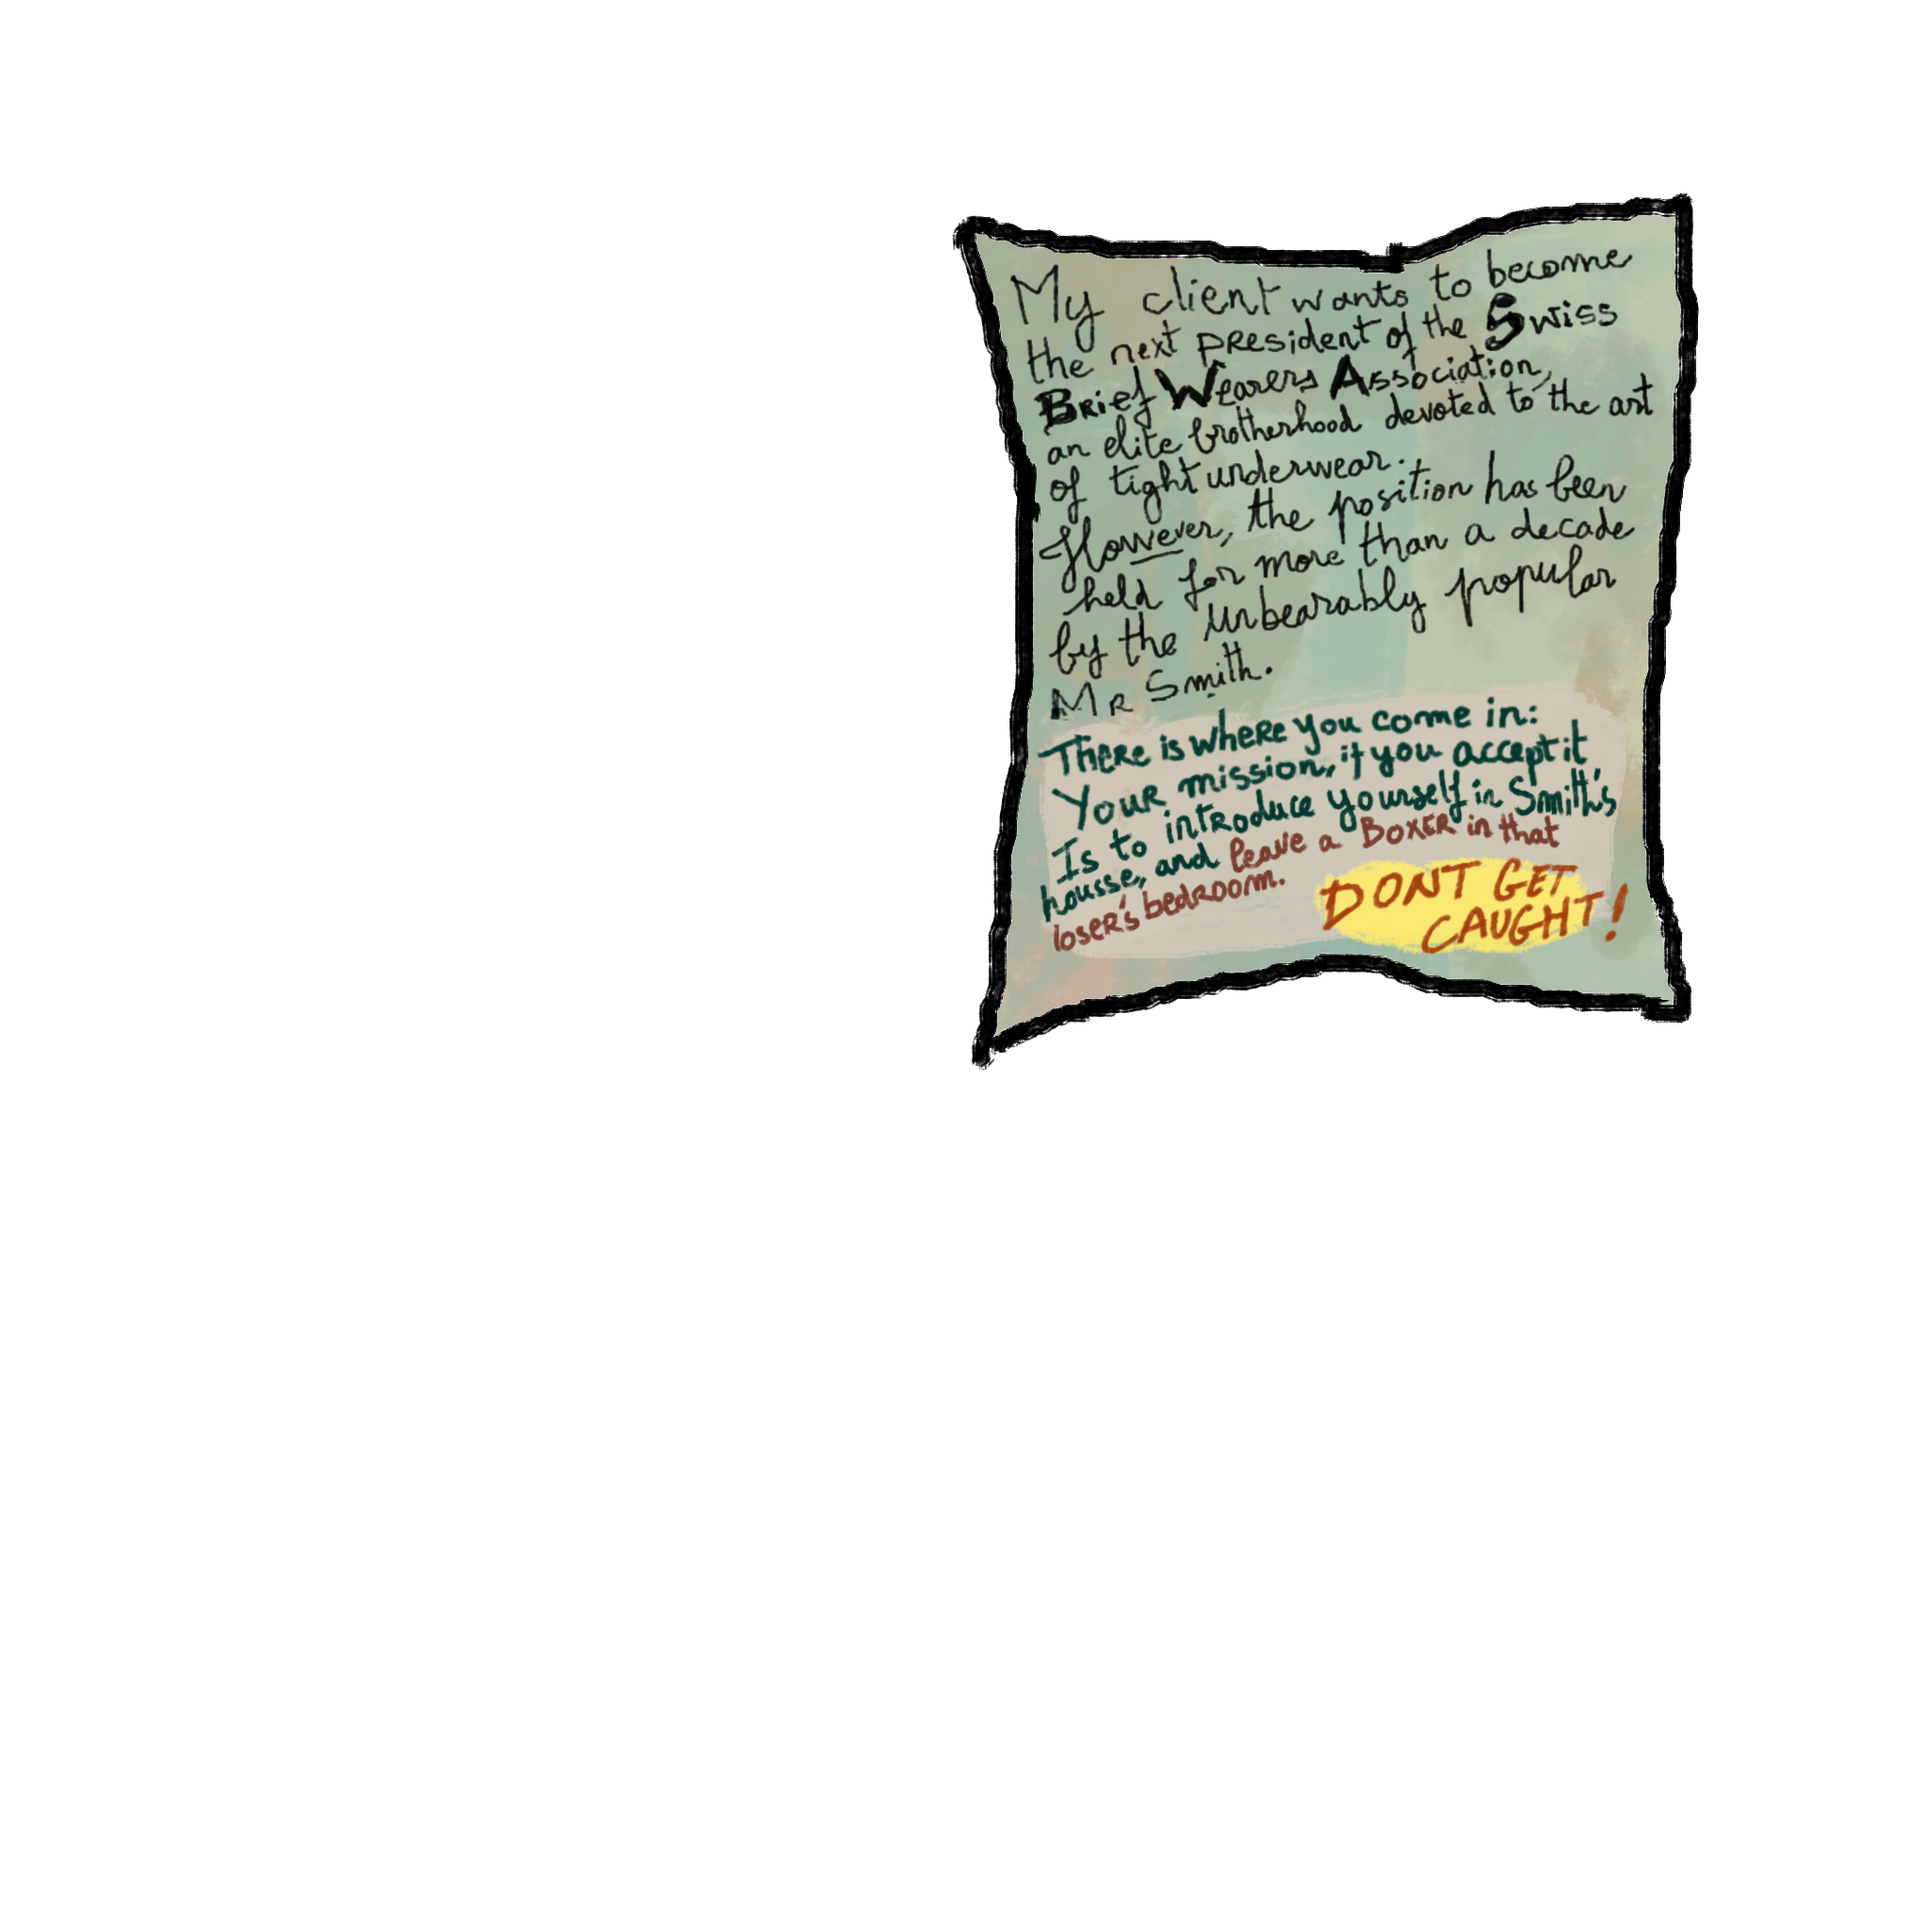 My client wants to become
the next president of the Swiss
Brief Wearers Association,
an elite brotherhood devoted to the art
of tight underwear.
However, the position has been
held for more than a decade
by the unbearably popular
Mr Smith.
There is where you come in:
Your mission, if you accept it
Is to introduce yourself in Smith's
housse, and leave a BOXER in that
loser's bedroom.
DONT GET
CAUGHT!